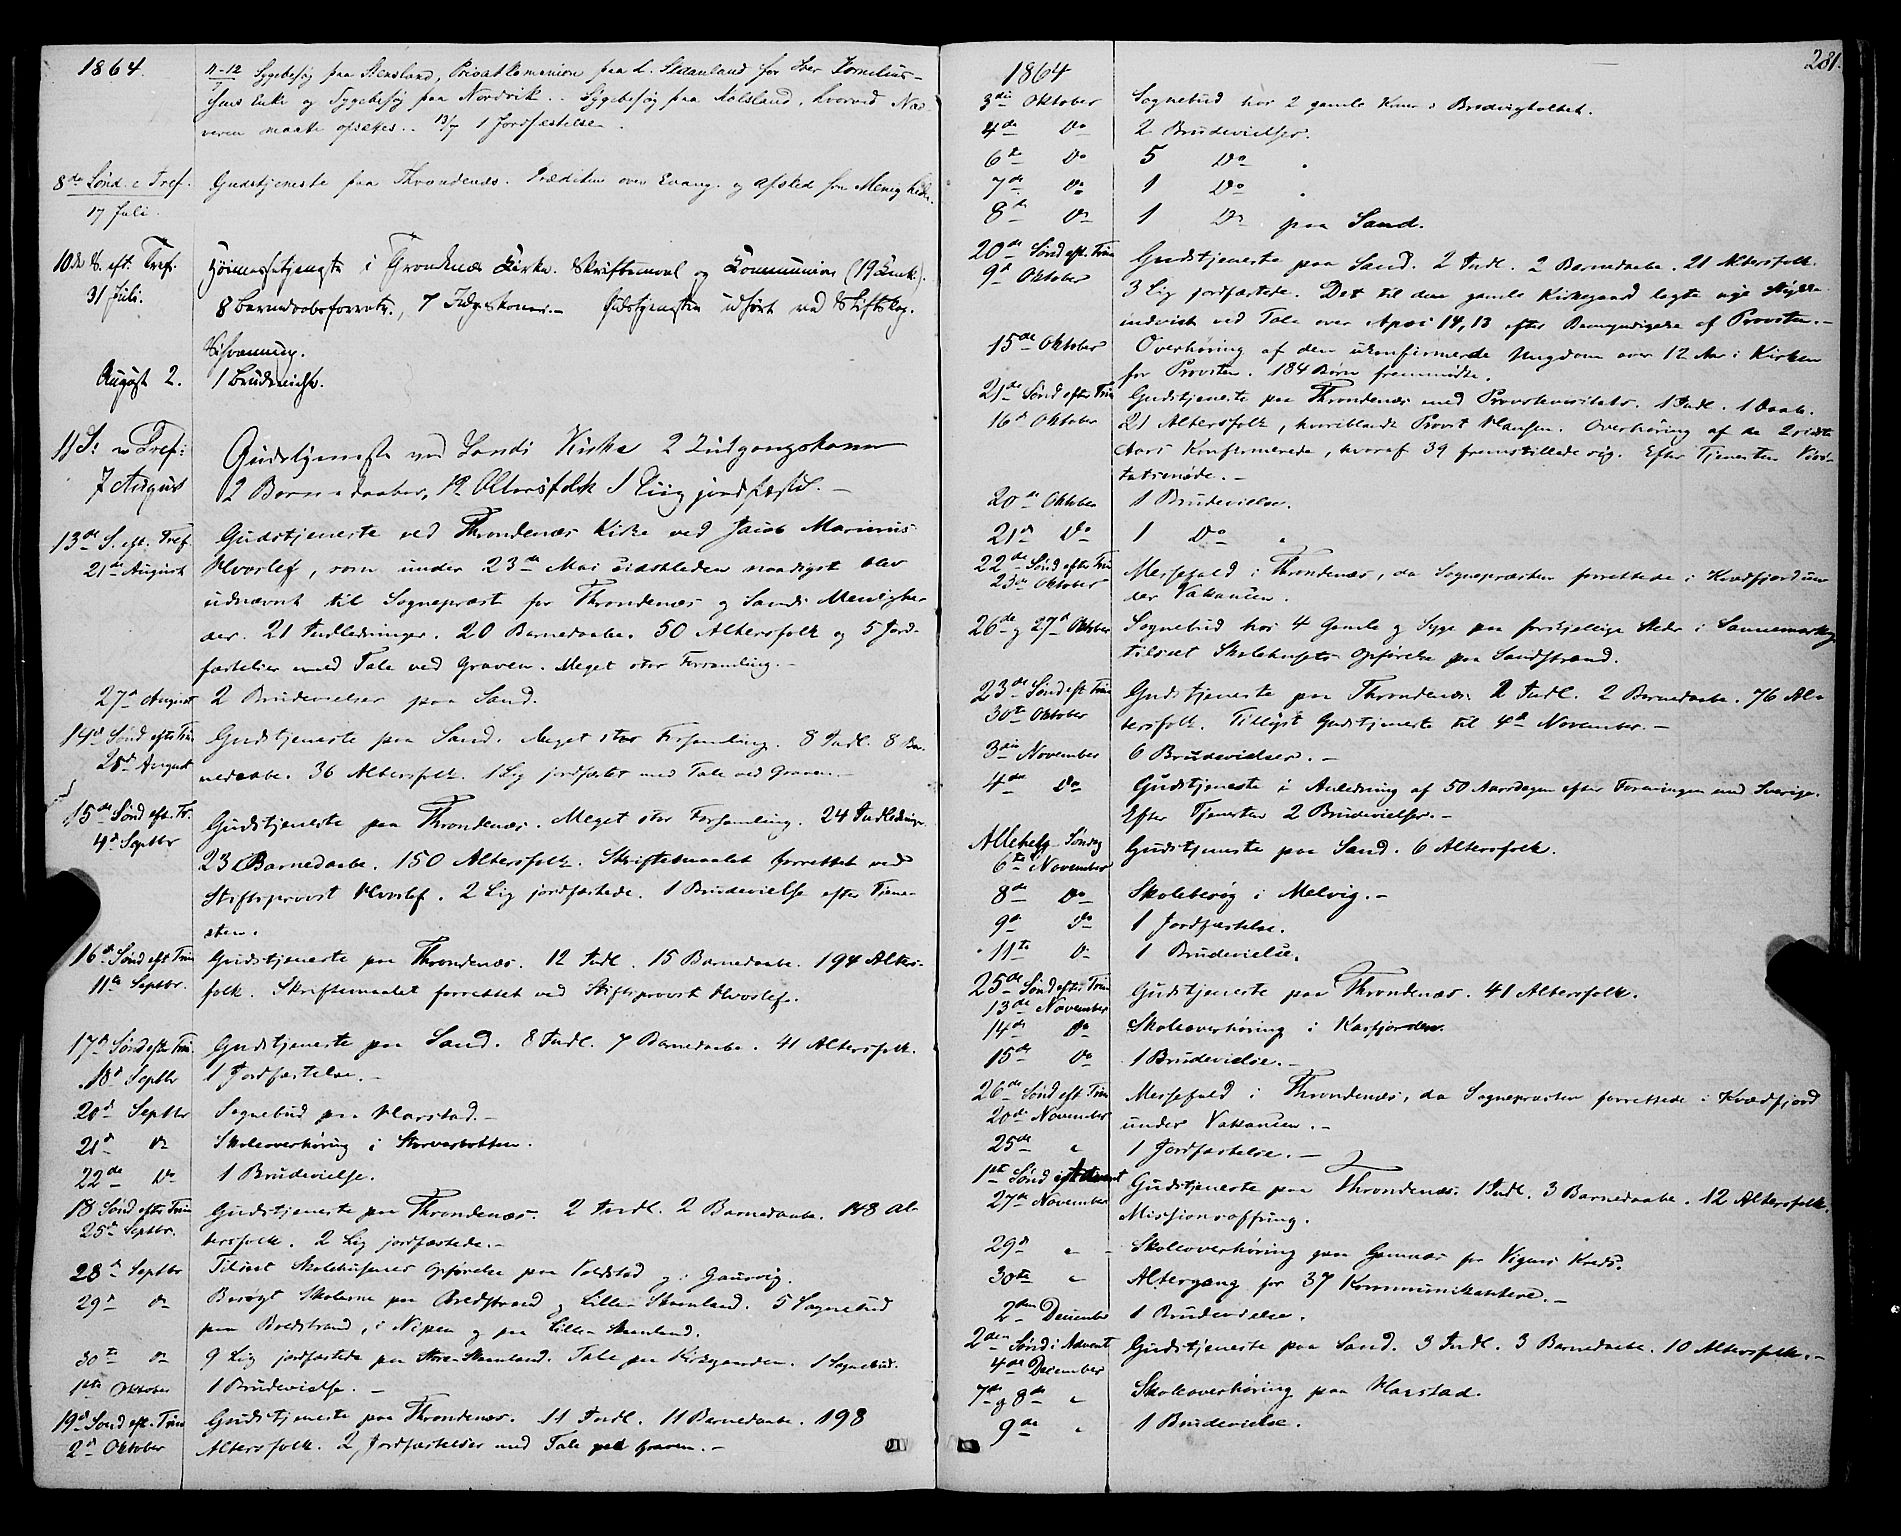 1864.
11-12/7 Sygebesøg paa Stensland, Privatkommunion paa L. Skaanland for Iver Kornelius-
sens Enke og Sygebesøg paa Nordvik. Sygebesøg paa Kalsland, hvorved
maatte opsættes. 13/7 1 Jordfæstelse.
8de Sønd. e. Tref. Gudstjeneste paa Throndenæs. Prædiken over Evang. og afsked fra Menigheden.
17 Juli.
10de S. eft. Tref. Høimessetjeneste i Trondenæs Kirke. Skriftemaal og Communion (19 Comk.).
31 Juli. 8 Barnedaabsforretn., 7 Kirkekoner.- Gudstjenesten udført ved Stiftskap.
August 2. 1 Brudevielse.
11 S: e Tref: Gudstjeneste ved Sands Kirke 2 Indgangskoner
7 August 2 Barnedaaber, 12 Altersfolk 1 Liig jordfæstet.-
13de S. eft. Tref. Gudstjeneste ved Throndenæs Kirke ved Jacob Marinus
21de August Hvoslef, som under 23de Mai sidstleden naadigst blev
udnævnt til Sognepræst for Throndenæs og Sands Menighe-
der. 21 Indledninger. 20 Barnedaabe. 50 Altersfolk og 5 Jord-
fæstelser med Tale ved Graven. Meget stor Forsamling.-
27de August 2 Brudevielser paa Sand.
14de Sønd efter Trin Gudstjeneste paa Sand. Meget stor Forsamling. 8 Indl. 8 Bar-
28de August nedaabe. 36 Altersfolk. 1 Lig jordfæstet med Tale ved Graven.-
15de Sønd eft. Tr. Gudstjeneste paa Throndenæs. Meget stor Forsamling. 24 Indledninger.
4de Septbr 23 Barnedaabe. 150 Altersfolk. Skriftemaalet forrettet ved
Stiftsprovst Hvoslef. 2 Lig jordfæstede. 1 Brudevielse efter Tjene-
sten.
16de Sønd eft Trin Gudstjeneste paa Throndenæs. 12 Indl. 15 Barnedaabe. 194 Alters-
11te Septbr. folk. Skriftemaalet forrettet ved Stiftsprovst Hvoslef.
17de Sønd efter Trin. Gudstjeneste paa Sand. 8 Indl. 7 Barnedaabe. 41 Altersfolk.
18de Septbr 1 Jordfæstelse.-
20de Septbr Sognebud paa Harstad.-
21de Do Skoleoverhøring i Storvasbotten.
22de Do 1 Brudevielse.
18 Sønd efter Trin Gudstjeneste paa Throndenæs. 2 Indl. 2 Barnedaabe. 148 Al-
25de Septbr. tersfolk. 2 Lig jordfæstede.-
28de Septbr Tilseet Skolehusenes Opførelse paa Voldstad og i Gausvig.
29de Do Besøgt Skolerne paa Bredstrand og Lille-Skaanland. 5 Sognebud
paa Bredstrand, i Nipen og paa Lille-Skaanland.
30te Do 9 Lig jordfæstede paa Store-Skaanland. Tale paa Kirkegaarden. 1 Sognebud.
1ste Oktober 1 Brudevielse.-
19de Sønd eft. Trin Gudstjeneste paa Throndenæs. 11 Indl. 11 Barnedaabe. 198
2den Oktober Altersfolk. 2 Jordfæstelser med Tale ved Graven.-
281.
1864
3die Oktober Sognebud hos 2 gamle Koner i
4de Do 2 Brudevielser.
6te Do 5 Do
7de Do 1 Do
8de Do 1 Do paa Sand.
20de Sønd eft. Trin Gudstjeneste paa Sand. 2 Indl. 2 Barnedaabe. 21 Altersfolk.
9de Oktober 3 Lig jordfæstede. Det til den gamle Kirkegaard lagte nye Stykke
indviet ved Tale over 14,13 efter Bemyndigelse af Provsten.-
15de Oktober Overhøring af den ukonfirmerede Ungdom over 12 Aar i Kirken
for Provsten. 184 Børn fremmødte.
21de Sønd efter Trin Gudstjeneste paa Throndenæs med Provstevisitats. 1 Indl. 1 Daab.
16de Oktober 21 Altersfolk, hvoriblandt Provst Hansen. Overhøring af de 2 sidste
Aars Konfirmerede, hvoraf 39 fremstillede sig. Efter Tjenesten Visi-
tatsmøde.-
20de Oktober 1 Brudevielse.
21de Do 1 Do
22de Sønd efter Trin Messefald i Throndenæs, da Sognepræsten forrettede i Kvædfjord un-
23de Oktober der Vakancen.
26de og 27de Oktober Sognebud hos 4 Gamle og Syge paa forskjellige Steder i
tilseet Skolehusets Opførelse paa Sandstrand.
23de Sønd eft Trin Gudstjeneste paa Throndenæs. 2 Indl. 2 Barnedaabe. 76 Al-
30te Oktober tersfolk. Tillyst Gudstjeneste til 4de November.-
3die November 6 Brudevielser.-
4de Do Gudstjeneste i Anledning af 50 Aarsdagen efter Foreningen med Sverige.
Efter Tjenesten 2 Brudevielser.-
Allehelg. Søndag Gudstjeneste paa Sand. 6 Altersfolk.
6te November
8de Do Skolebesøg i Melvig.-
9de Do 1 Jordfæstelse.
11te Do 1 Brudevielse.
25de Sønd efter Trin Gudstjeneste paa Throndenæs. 41 Altersfolk.
13de November
14de Do Skoleoverhøring i Kasfjorden.
15de Do 1 Brudevielse.-
26de Sønd eft Trin Messefald i Throndenæs, da Sognepræsten forrettede i Kvædfjord
20de November under Vakancen.-
25de " 1 Jordfæstelse.-
1ste Sønd i Advent Gudstjeneste paa Throndenæs. 1 Indl. 3 Barnedaabe. 12 Altersfolk.
27de November Missionsoffring.
29de " Skoleoverhøring paa for Kreds.
30te " Altergang for 37 Kommunikantere.-
2den December 1 Brudevielse.
2den Sønd i Advent Gudstjeneste paa Sand. 3 Indl. 3 Barnedaabe. 10 Altersfolk.-
4de December
7de og 8de " Skoleoverhøring paa Harstad.
9de " 1 Brudevielse.